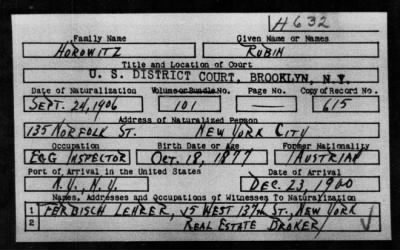 H 632
Family Name Given Name or Names
HOROWITZ RUBIN
Title and Location of Court
U. S. DISTRICT COURT, BROOKLYN, N.Y.
Date of Naturalization Volume or Bundle No. Page No. Copy of Record No.
SEPT. 24, 1906 101 — 615
Address of Naturalized Person
135 NORFOLK ST. NEW YORK CITY
Occupation Birth Date or Age Former Nationality
EGG INSPECTOR OCT. 18, 1877 AUSTRIAN
Port of Arrival in the United States Date of Arrival
N.Y., N.Y. DEC. 23, 1900
Names, Addresses and Occupations of Witnesses To Naturalization
1 FERBISCH LEHRER, 25 WEST 137th ST., NEW YORK
2 REAL ESTATE BROKER